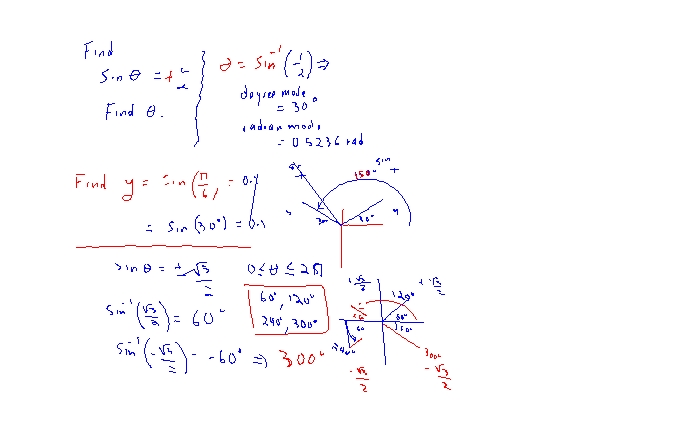 Find
Sin θ = +
Find θ.
θ = sin⁻¹(1/2) ⇒
degree mode
= 30°
radian mode
= 0.5236 rad
Find y = sin(π/6) = 0.5
= Sin(30°) = 0.5
150°
sin +
30°
sin θ = ± √3/2
0 ≤ θ ≤ 2π
sin⁻¹(√3/2) = 60°
60°, 120°
240°, 300°
sin⁻¹(-√3/2) = -60° ⇒ 300°
+ √3/2
120°
+ √3/2
60
60°
300°
- √3/2
- √3/2